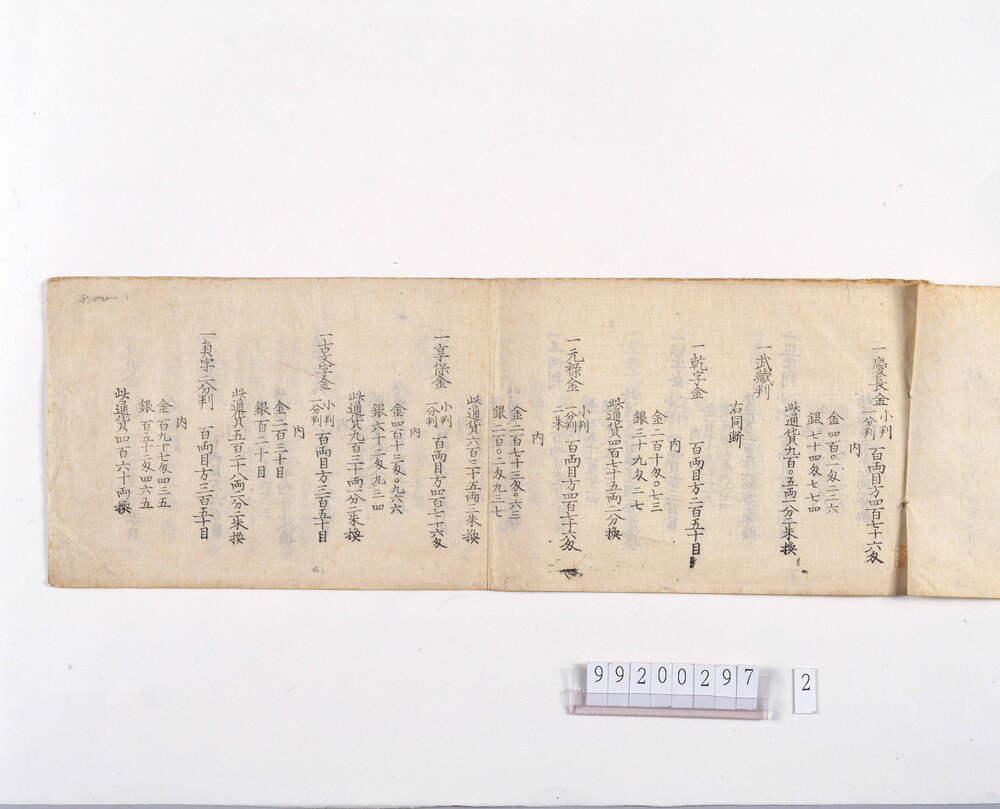 一慶長金 小判 一分判 百両目方四百七十六匁
内
金四百〇一匁二三六
銀七十四匁七七四
此通貨九百〇五両一分二朱換
一武蔵判
右同断
一乾字金 百両目方二百五十目
内
金二百十匁〇七三
銀三十九匁九二七
此通貨四百七十五両二分換
一元禄金 小判 一分判 二朱 百両目方四百七十六匁
内
金二百七十三匁〇六三
銀二百〇二匁九三七
此通貨六百三十五両三朱換
一享保金 小判 一分判 百両目方四百七十六匁
内
金四百十三匁〇九六六
銀六十二匁九三四
此通貨九百三十両一分二朱換
一古文字金 小判 一分判 百両目方三百五十目
内
金二百三十目
銀百二十目
此通貨五百三十八両二分二朱換
一真字二分判 百両目方三百五十目
内
金百九十七匁四三五
銀百五十二匁四六五
此通貨四百六十両換
99200297 2